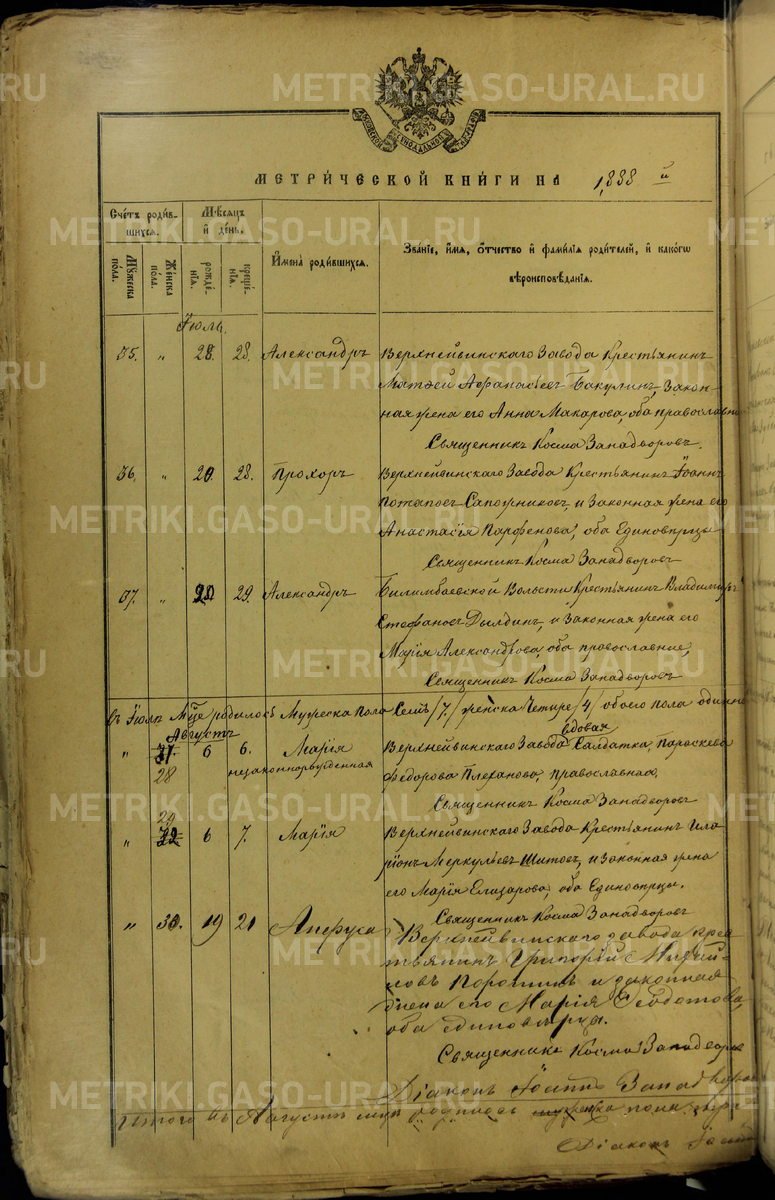 METRIKI.GASO-URAL.RU
МЕТРИ́ЧЕСКОЙ КНИ́ГИ НА 1,888 й
Сче́тъ роди́в-
шихся.
Му́жеска
по́ла.
Же́нска
по́ла.
Мѣ́сяцъ
и де́нь.
рожде́-
нія.
креще́-
нія.
Имена̀ роди́вшихся.
Зва́ніе, и́мя, о́тчество и фами́лія роди́телей, и како́гѡ
вѣроисповѣ́данія.
Іюль.
35. „ 28. 28. Александръ Верхнейвинскаго Завода Крестьянинъ
Матѳей Аѳанасьевъ Бакулинъ, Закон-
ная жена его Анна Макарова, оба православн
Священникъ Косма Занадворовъ.
36. „ 20. 28. Прохоръ Верхнейвинскаго Завода Крестьянинъ Іоаннъ
Потаповъ Сапожниковъ, и Законная жена его
Анастасія Парфенова, оба Единовѣрцы
Священникъ Косма Занадворовъ
37. „ 29. Александръ Билимбаевской Волости Крестьянинъ Владимиръ
Стефановъ Дылдинъ, и Законная жена его
Марія Александрова, оба православные,
Священникъ Косма Занадворовъ
въ Іюлѣ Мцѣ родилось Мужеска Пола Семь /7./ женска Четыре /4/ обоего пола одинн
Августъ
„ 31. 28 6 6. Марія незаконнорожденная Верхнейвинскаго Завода вдовая Салдатка, Параскева
Федорова Плеханова, православная,
Священникъ Косма Занадворовъ
„ 29 32 6 7. Марія Верхнейвинскаго Завода Крестьянинъ Ила
ріонъ Меркульевъ Шитовъ, и законная жена
его Марія Елизарова, оба Единовѣрцы.
Священникъ Косма Занадворовъ
„ 30. 19 21 Анфуса Верхнейвинскаго завода крес
тьянинъ Григорій Михай-
ловъ Поротинъ и законная
жена его Марія Ѳедотова,
оба единовѣрцы.
Священникъ Косма Занадворов
Діаконъ Іоаннъ Занадворов
Итого въ Августѣ мцѣ родилось мужеска пола
Діаконъ Іоанн